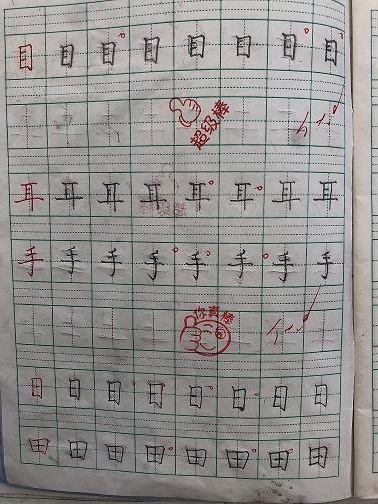 目目目目目目目目
超级棒
耳耳耳耳耳耳耳耳
手手手手手手手手
你真棒
日日日日日日日日
田田田田田田田田